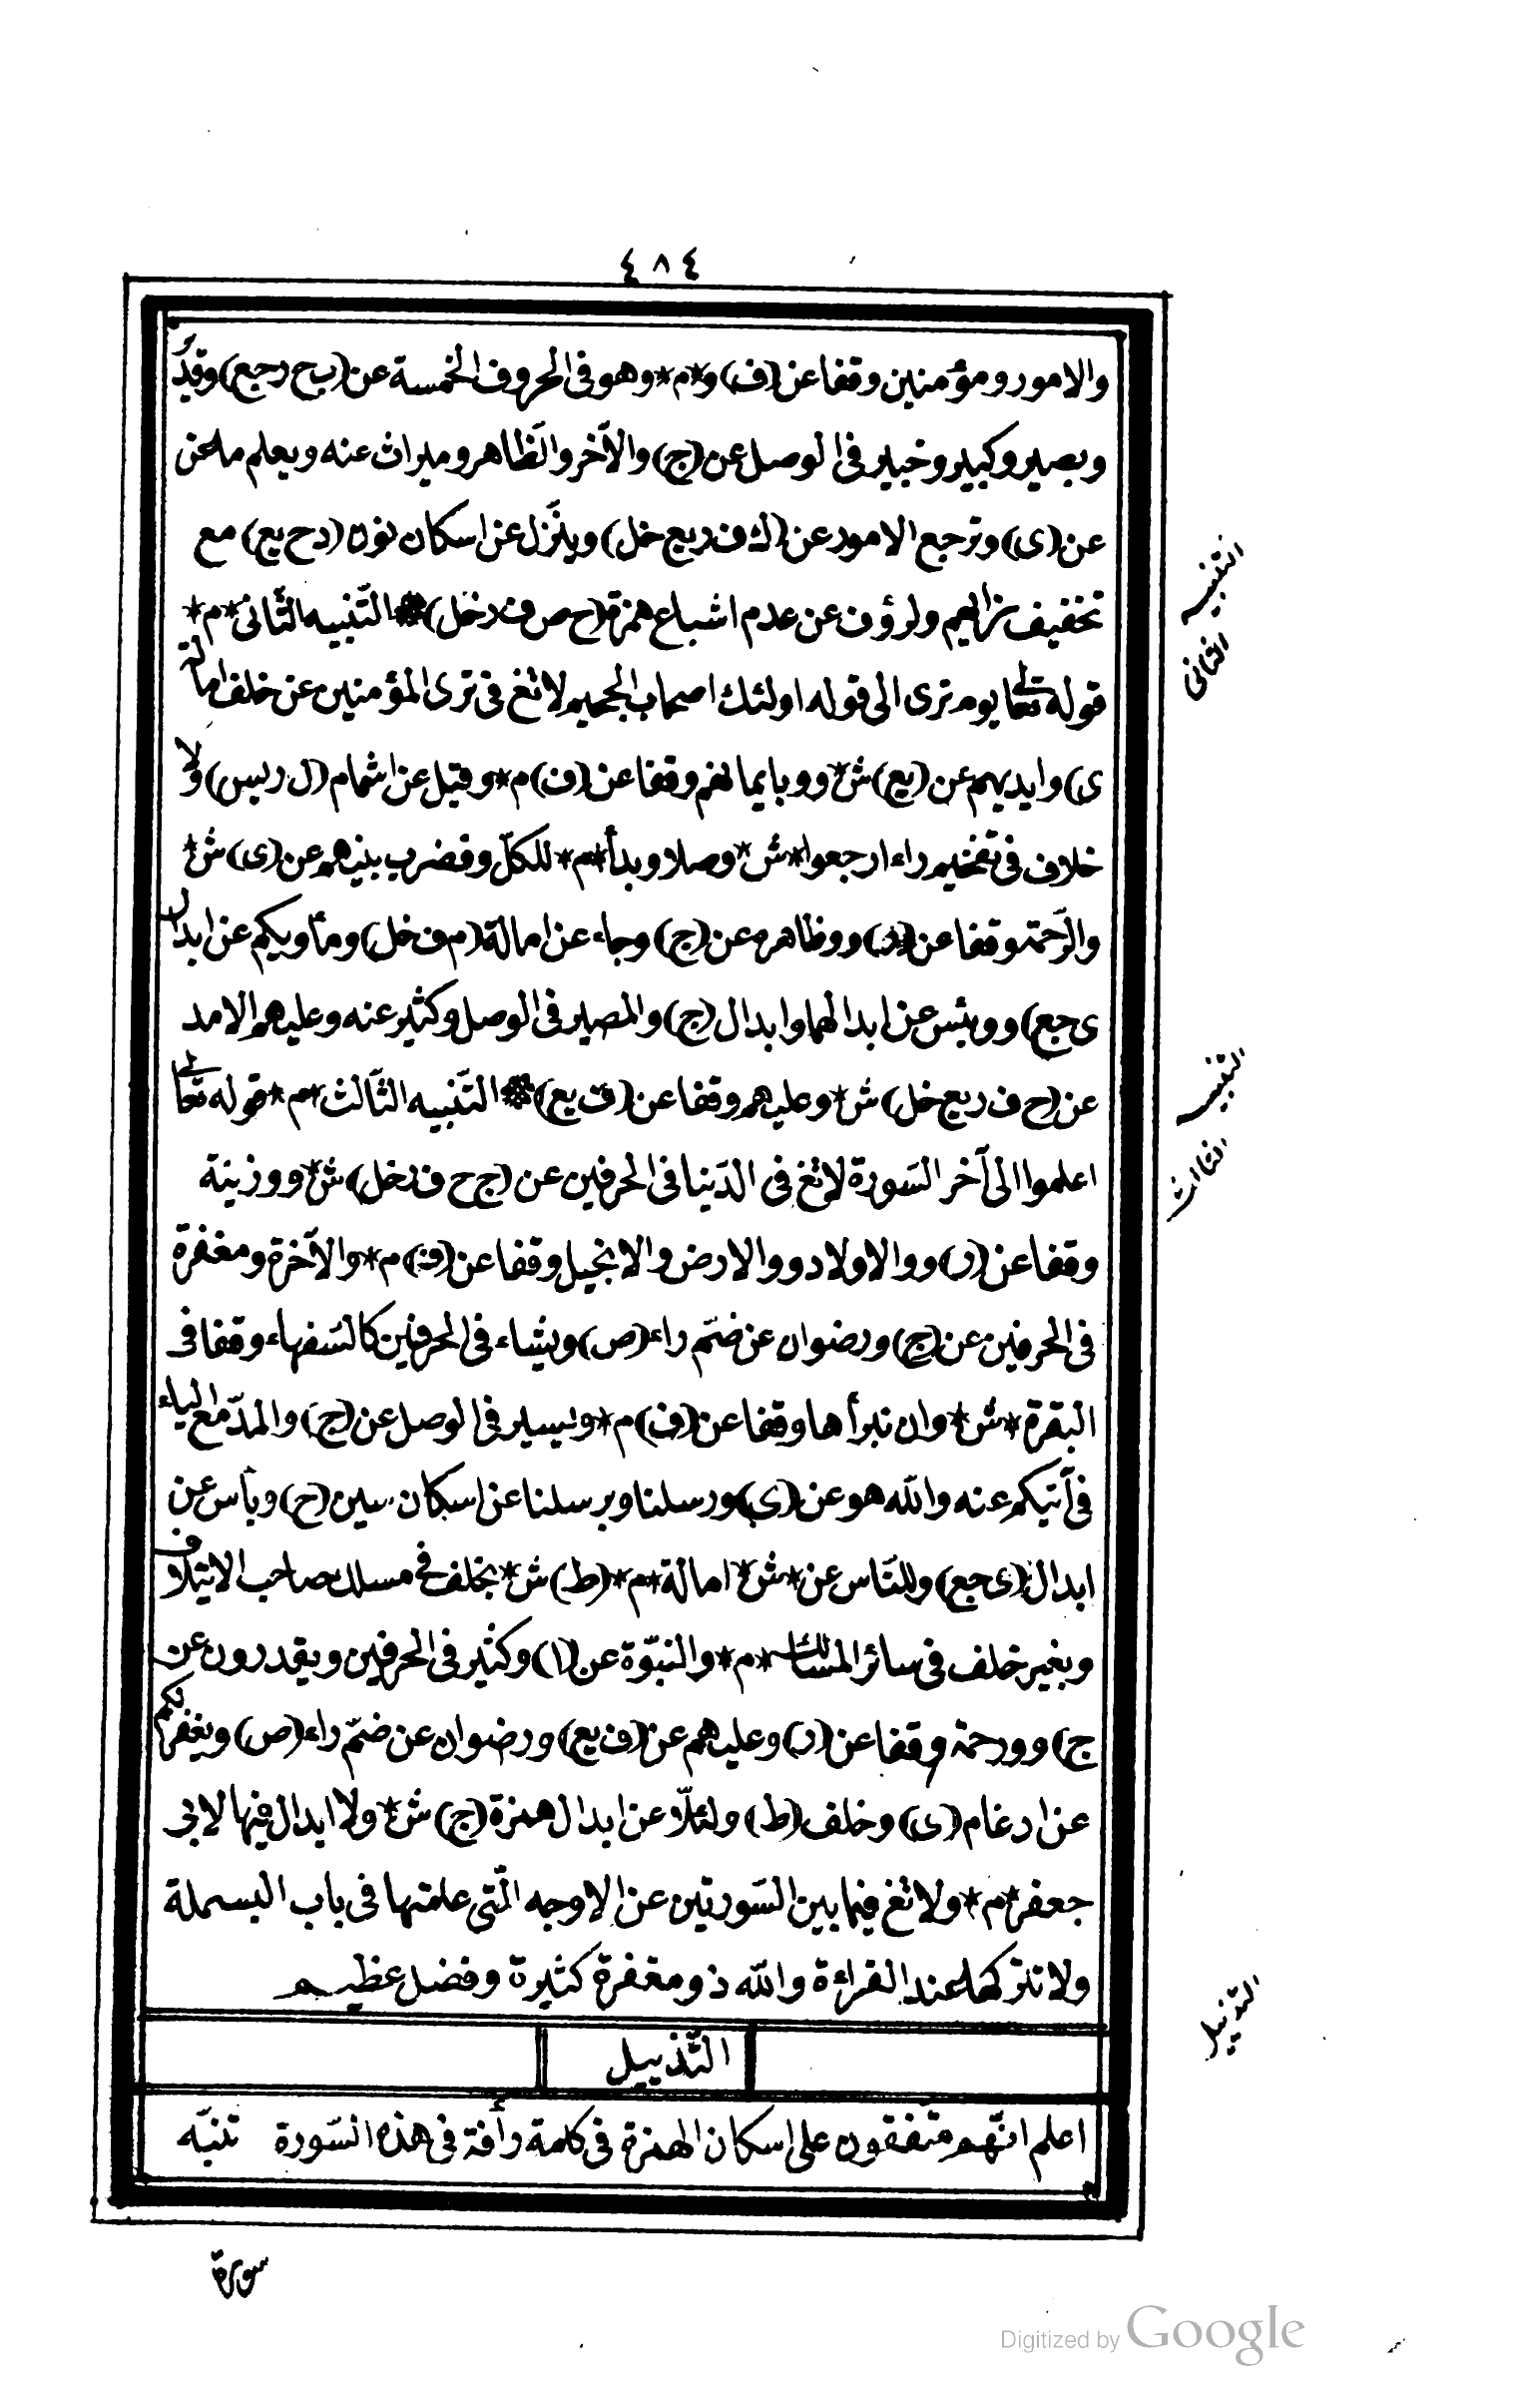 ٤٨٤
والامور ومؤمنين وقفا عن (ف) و*م* وهو فى الحروف الخمسة عن (ب ح ر جع) وقدير
وبصير وكبير وخبير فى الوصل عن (ج) والآخر والظاهر وميراث عنه ويعلم ما عن
عن (ى) وترجع الامور عن (ك ف ر يع خل) وينزل عن اسكان نون (د ح يع) مع
تخفيف زائهم ولرؤف عن عدم اشباع همزة (ح ص ف ر خل) * التّنبيه الثّانى *م*
قوله تعالى يوم ترى الى قوله اولئك اصحاب الجحيم لا تغ فى ترى المؤمنين عن خلف امالة
ى) وايديهم عن (يع) ش* ووبايمانهم وقفا عن (ف) م* وقيل عن اشمام (ل ر يس) ولا
خلاف فى تفخيم راء ارجعوا *ش* وصلا وبدأ *م* للكلّ وفضرب بينهم عن (ى) ش*
والرّحمة وقفا عن (ر) ووظاهره عن (ج) وجاء عن امالة (م ف خل) ومأويكم عن ابدال
ى جع) ووبئس عن ابدالهما وابدال (ج) والمصير فى الوصل وكثير عنه وعليهم الامد
عن (ح ف ر يع خل) ش* وعليهم وقفا عن (ف يع) * التّنبيه الثّالث *م* قوله تعالى
اعلموا الى آخر السّورة لا تغ فى الدّنيا فى الحرفين عن (ج ح ف ر خل) ش* ووزينة
وقفا عن (ر) ووالاولاد ووالارض والانجيل وقفا عن (ف) م* والآخرة ومغفرة
فى الحرفين عن (ج) ورضوان عن ضمّ راء (ص) ويشاء فى الحرفين كالسّفهاء وقفا فى
البقرة *ش* وان نبرأها وقفا عن (ف) م* ويسير فى الوصل عن (ج) والمدّ مع الياء
فى آتيكم عنه والله هو عن (ى) ورسلنا وبرسلنا عن اسكان سين (ح) وبأس عن
ابدال (ى جع) وللنّاس عن *ش* امالة *م* (ط) ش* بخلف فى مسلك صاحب الائتلاف
وبغير خلف فى سائر المسالك *م* والنبوّة عن (ا) وكثير فى الحرفين ويقدرون عن
ج) وورحمة وقفا عن (ر) وعليهم عن (ف يع) ورضوان عن ضمّ راء (ص) ويغفر لكم
عن ادغام (ى) وخلف (ط) ولئلّا عن ابدال همزة (ج) ش* ولا ابدال فيها لابى
جعفر *م* ولا تغ فيما بين السّورتين عن الاوجه الّتى علمتها فى باب البسملة
ولا تتركها عند القراءة والله ذو مغفرة كثيرة وفضل عظيم
التّذييل
اعلم انّهم متّفقون على اسكان الهمزة فى كلمة رأفة فى هذه السّورة تنبّه
سورة
التنبيه
الثانى
التنبيه
الثالث
التذييل
Digitized by Google